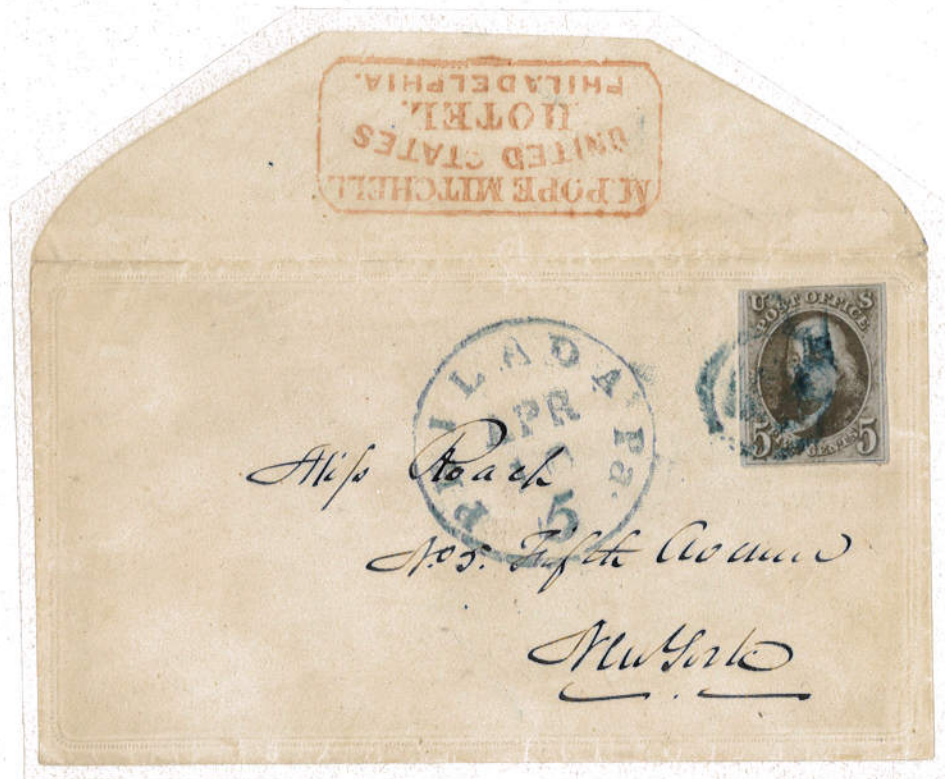 M. POPE MITCHELL
UNITED STATES
HOTEL.
PHILADELPHIA.
U S
POST OFFICE
5 CENTS 5
PHILADA Pa.
APR
5
Miss Roach
No 5. Fifth Avenue
New York